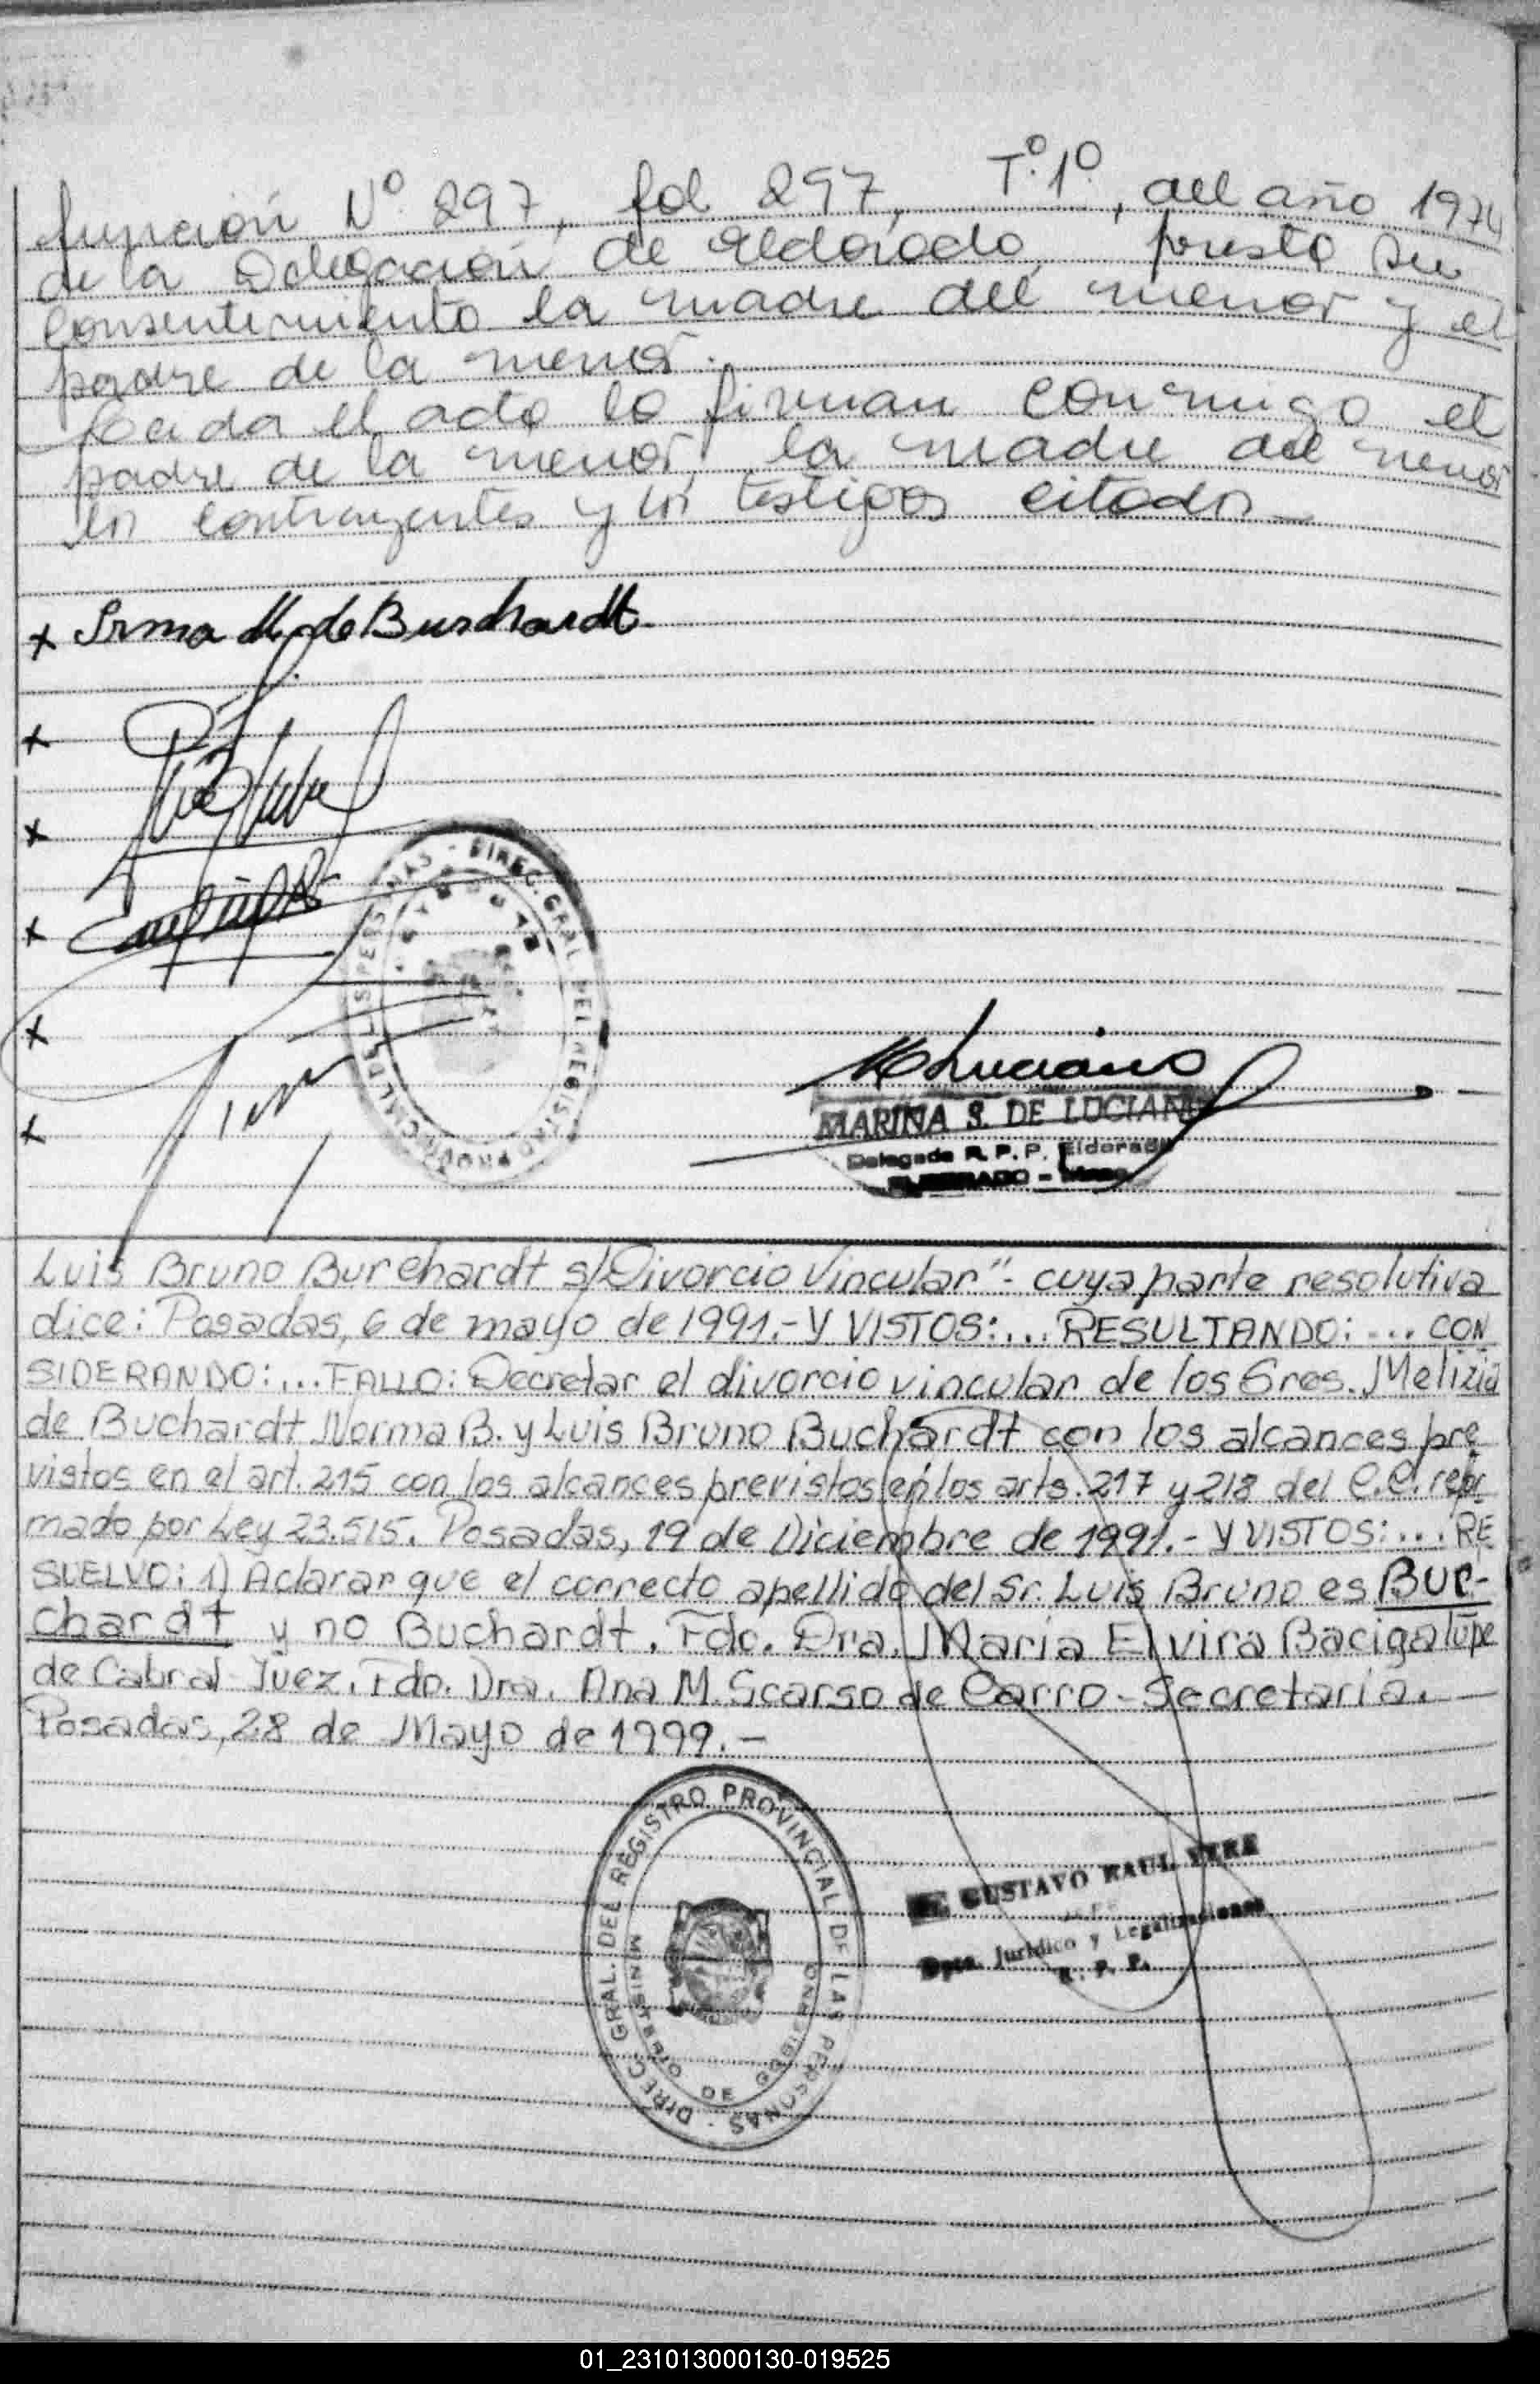 función Nº 297, fol 297, Tº.1º., del año 1974
de la Delegación de Eldorado, presta su
consentimiento la madre del menor y el
padre de la menor.
Leida el acta la firman conmigo el
padre de la menor, la madre del menor
los contrayentes y los testigos citados
x Irma M. de Burchardt
x
x
x
x
x
PERSONAS - DIREC. GRAL. DEL REGISTRO PROVINCIAL DE LAS
MLuciano
MARINA S. DE LUCIANO
Delegada R. P. P. Eldorado
ELDORADO -
Luis Bruno Burchardt s/Divorcio Vincular"- cuya parte resolutiva
dice: Posadas, 6 de mayo de 1991.- Y VISTOS:... RESULTANDO:.... CON
SIDERANDO:... FALLO: Decretar el divorcio vincular de los Sres. Melizia
de Buchardt Norma B. y Luis Bruno Buchardt con los alcances pre
vistos en el art. 215 con los alcances previstos en los arts. 217 y 218 del C.C. refor
mado por Ley 23.515. Posadas, 19 de Diciembre de 1991.- Y VISTOS:... RE
SUELVO: 1) Aclarar que el correcto apellido del Sr. Luis Bruno es Bur-
chardt y no Buchardt. Fdo. Dra. Maria Elvira Bacigalupe
de Cabral Juez. Fdo. Dra. Ana M. Scarso de Carro - Secretaria.
Posadas, 28 de Mayo de 1999.-
DIREC. GRAL. DEL REGISTRO PROVINCIAL DE LAS PERSONAS -
MINISTERIO DE GOBIERNO
GUSTAVO RAUL
JEFE
Dpto. Jurídico y Legalizaciones
R. P. P.
01_231013000130-019525